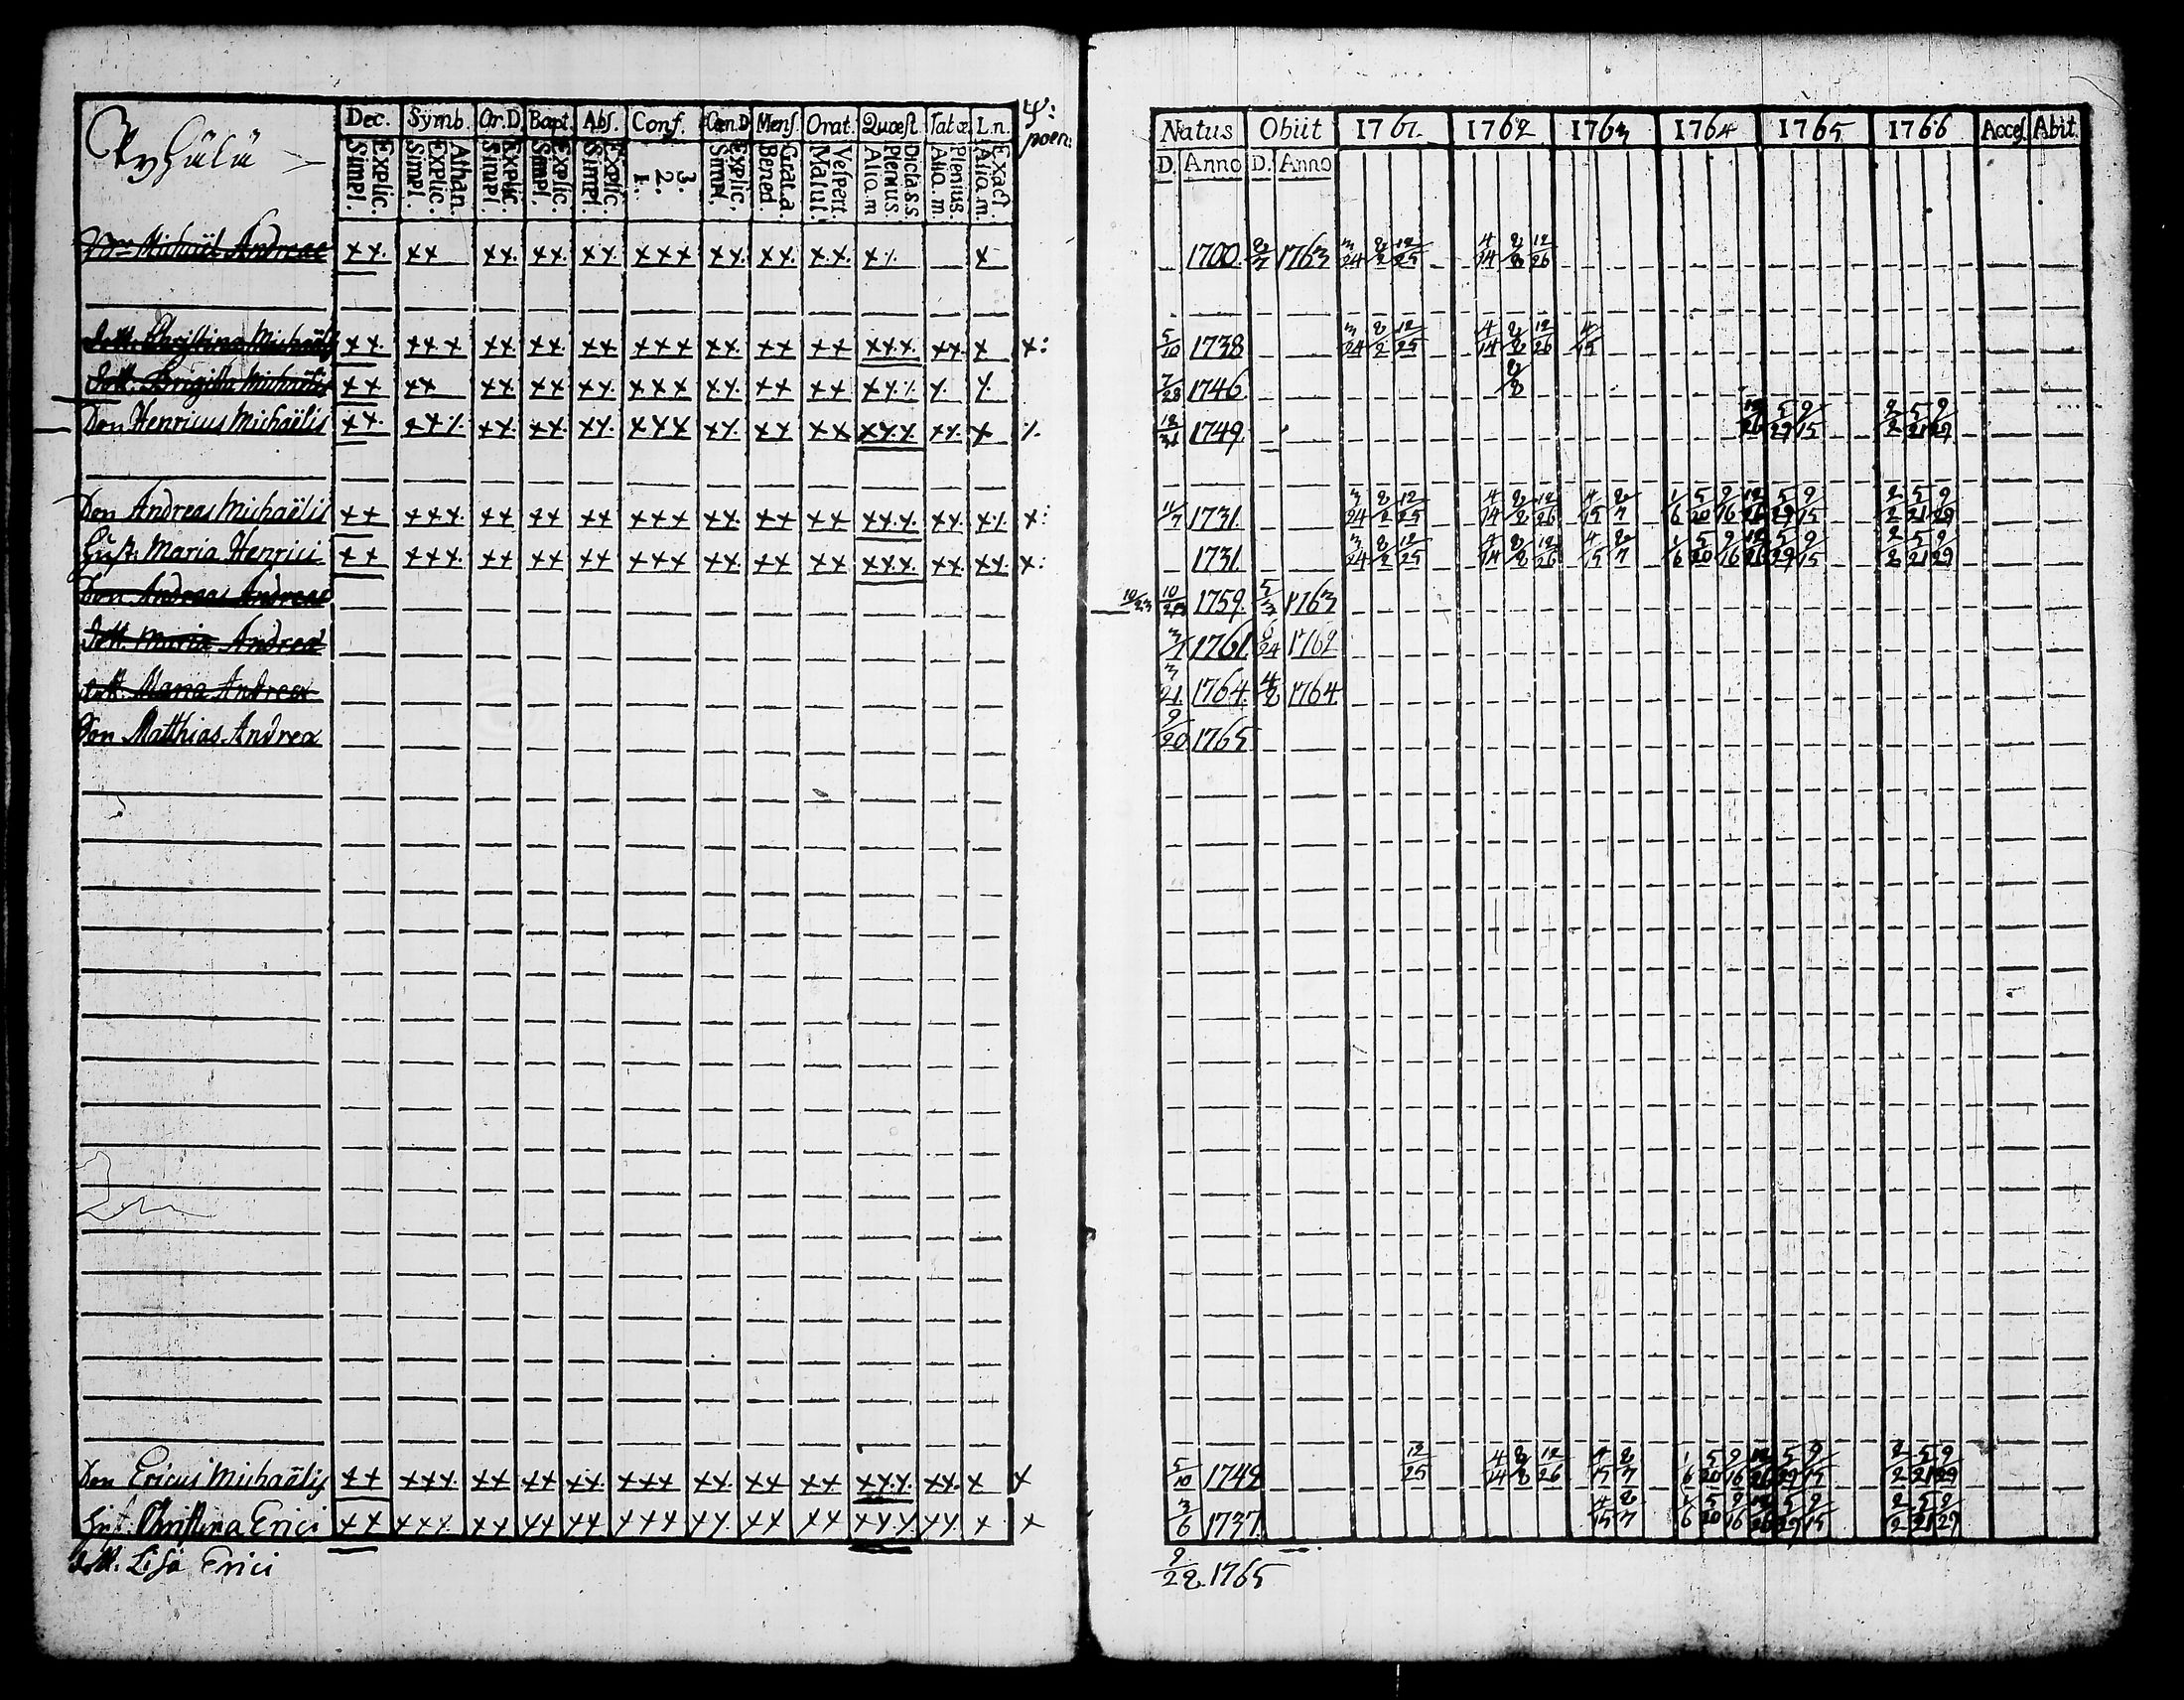 Dec. Symb. Or.D. Bapt. Abs. Conf. Cœn.D. Mens. Orat. Quæst. Tab.œ. L.n. ψ: poen:
Explic. Simpl. Athan. Explic. Simpl. Explic. Simpl. Explic. Simpl. Explic. Simpl. 3. 2. 1. Explic. Simpl. Grat.a. Bened. Vespert. Matut. Dicta S.S. Plenius. Alio.m Plenius. Alio.m. Exact. Alio.m.
Natus Obiit 1761. 1762 1763 1764 1765 1766 Acces. Abit.
D. Anno D. Anno
Michaël Andreae xx. xx xx. xx. xx xxx xx. xx. xx. x/. x 1700. 8/7 1763 3/24 8/2 12/25 4/14 8/8 12/26
Christina Michaëlis xx. xxx xx. xx. xx xxx xx. xx xx xxx. xx. x x: 5/10 1738 3/24 8/2 12/25 4/14 8/8 12/26 4/15
Brigitta Michaëlis xx xx xx xx xx. xxx xx. xx xx xx/. x. /. 7/28 1746 8/8
Son Henricus Michaëlis xx. xx/. xx. xx. xx. xxx xx. xx xx xx.x. xx. x /. 12/31 1749. 12/26 5/29 9/15 2/2 5/21 9/29
Son Andreas Michaëlis xx xxx. xx xx xx xxx xx. xx xx xx.x. xx. x/. x: 11/7 1731. 3/24 8/2 12/25 4/14 8/8 12/26 4/15 8/7 1/6 5/20 9/16 12/26 5/29 9/15 2/2 5/21 9/29
Hust. Maria Henrici xx xxx. xx xx xx xxx xx. xx xx xxx. xx. xx. x: 1731. 3/24 8/2 12/25 4/14 8/8 12/26 4/15 8/7 1/6 5/20 9/16 12/26 5/29 9/15 2/2 5/21 9/29
Son Andreas Andreae 10/23 10/23 1759. 5/3 1763
Maria Andreæ 3/1 1761. 6/24 1762
Maria Andreæ 3/21. 1764. 4/8 1764.
Son Matthias Andreæ 9/20 1765
Son Ericus Michaëlis xx xxx. xx xx xx. xxx xx. xx xx. xx.x. xx. x x 5/10 1742 12/25 4/14 8/8 12/26 4/15 8/7 1/6 5/20 9/16 12/26 5/29 9/15 2/2 5/21 9/29
Hust. Christina Erici xx xxx. xx xx xx xxx xx. xx xx xx.x xx. x x 3/6 1737. 4/15 8/7 1/6 5/20 9/16 12/26 5/29 9/15 2/2 5/21 9/29
Lisa Erici 9/28. 1765